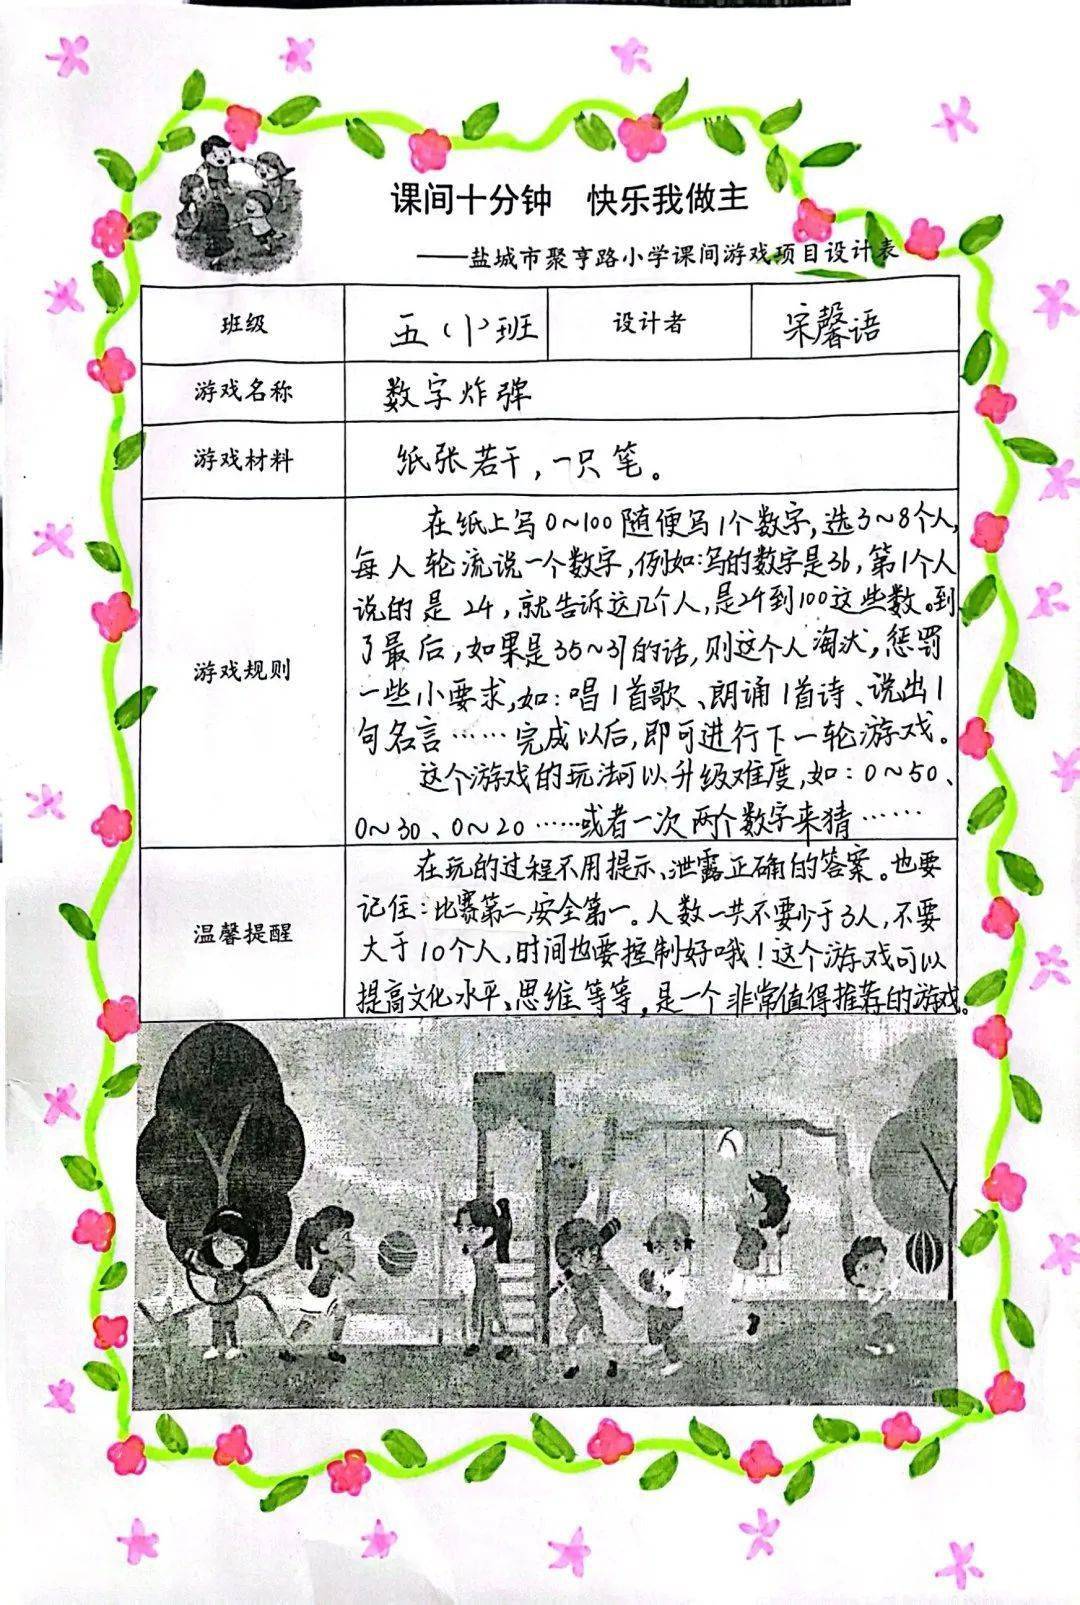 课间十分钟　快乐我做主
——盐城市聚亨路小学课间游戏项目设计表
班级 五（1）班 设计者 宋馨语
游戏名称 数字炸弹
游戏材料 纸张若干，一只笔。
游戏规则
在纸上写0~100随便写1个数字，选3~8个人，
每人轮流说一个数字，例如：写的数字是36，第1个人
说的是24，就告诉这几个人，是24到100这些数。到
了最后，如果是35~37的话，则这个人淘汰，惩罚
一些小要求，如：唱1首歌、朗诵1首诗、说出1
句名言……完成以后，即可进行下一轮游戏。
这个游戏的玩法可以升级难度，如：0~50、
0~30、0~20……或者一次两个数字来猜……
温馨提醒
在玩的过程不用提示、泄露正确的答案。也要
记住：比赛第二，安全第一。人数一共不要少于3人，不要
大于10个人，时间也要控制好哦！这个游戏可以
提高文化水平、思维等等，是一个非常值得推荐的游戏。